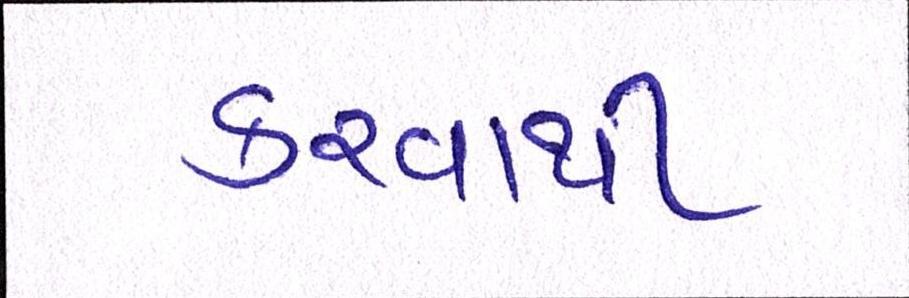 કરવાથી